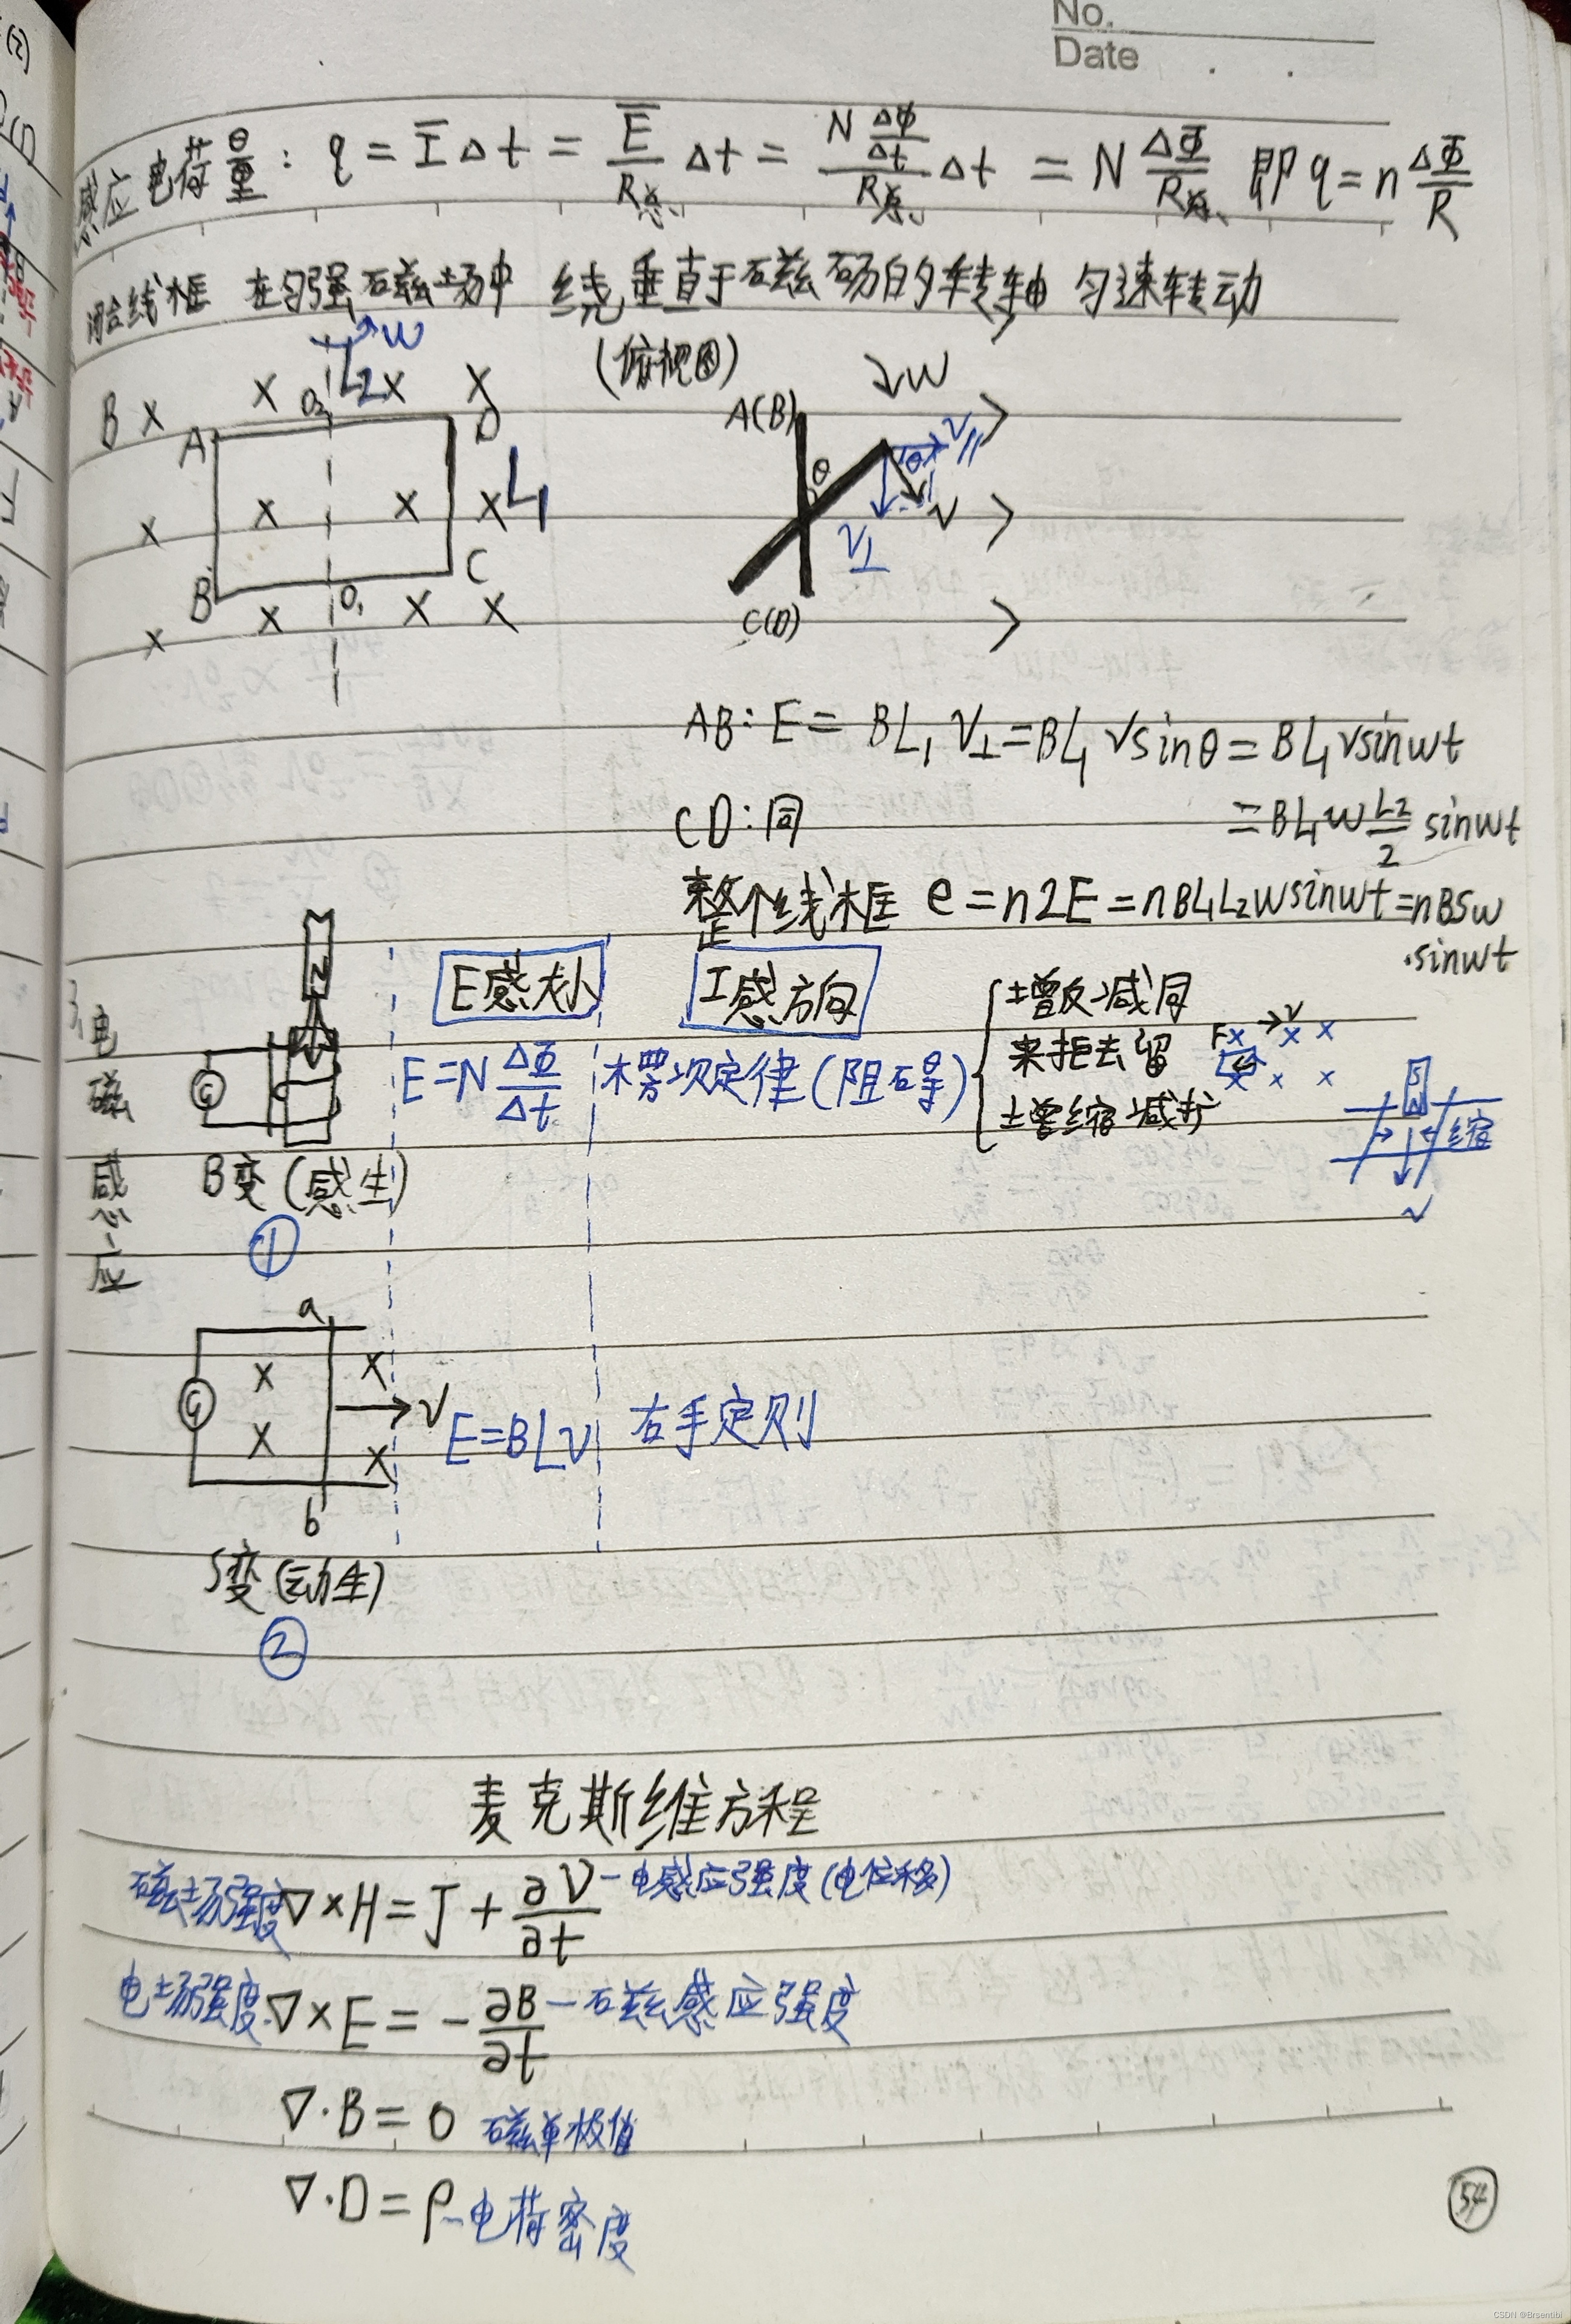 No.
Date
感应电荷量：q = I̅Δt = E̅/R总 Δt = (N ΔΦ/Δt)/R总 Δt = N ΔΦ/R总 即 q = n ΔΦ/R
闭合线框 在匀强磁场中 绕垂直于磁场的转轴 匀速转动
(俯视图)
w
L2
B × × × ×
A O2 D
× × × × L1
B O1 C
× × × ×
w
A(B)
θ θ V∥
V
V⊥
C(D)
AB: E = BL₁V⊥ = BL₁Vsinθ = BL₁Vsinwt
CD: 同 = BL₁w L2/2 sinwt
整个线框 e = n2E = nBL₁L₂wsinwt = nBSw
·sinwt
电磁感应
N
G
B变(感生)
①
E感大小
E = N ΔΦ/Δt
I感方向
楞次定律(阻碍)
增反减同
来拒去留
增缩减扩
F × → V × ×
× × ×
S
N
缩
V
a
G × ×
× ×
→ V
b
E = BLV
右手定则
S变(动生)
②
麦克斯维方程
磁场强度 ∇×H = J + ∂V/∂t - 电感应强度(电位移)
电场强度 ∇×E = - ∂B/∂t - 磁感应强度
∇·B = 0 磁单极值
∇·D = ρ - 电荷密度
54
CSDN @Brsentibi